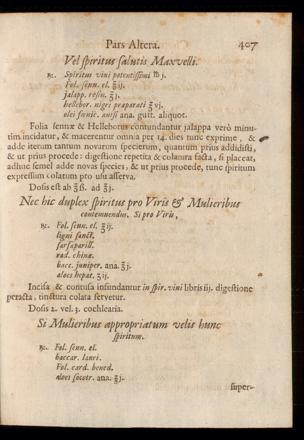 Pars Altera. 407
Vel spiritus salutis Maxvelli.
℞. Spiritus vini potentissimi ℔ j.
Fol. senn. el. ℥ ij.
jalapp. resin. ℥ j.
hellebor. nigri præparati ʒ vj.
olei fœnic. anisi ana. gutt. aliquot.
Folia sennæ & Helleborus contundantur jalappa verò minu-
tim incidatur, & macerentur omnia per 14. dies tunc exprime, &
adde iterum tantum novarum specierum, quantum prius addidisti,
& ut prius procede: digestione repetita & colatura facta, si placeat,
adhuc semel adde novas species, & ut prius procede, tunc spiritum
expressum colatum pro usu asserva.
Dosis est ab ℥ ß. ad ℥ j.
Nec hic duplex spiritus pro Viris & Mulieribus
contemnendus. Si pro Viris,
℞. Fol. senn. el. ℥ ij.
ligni sanct.
sarsaparill.
rad. chinæ.
bacc. juniper. ana. ℥ j.
aloes hepat. ℥ ij.
Incisa & contusa infundantur in spir. vini libris iij. digestione
peracta, tinctura colata servetur.
Dosis 2. vel 3. cochlearia.
Si Mulieribus appropriatum velis hunc
spiritum.
℞. Fol. senn. el.
baccar. lauri.
Fol. card. bened.
aloes socotr. ana. ℥ j.
super-